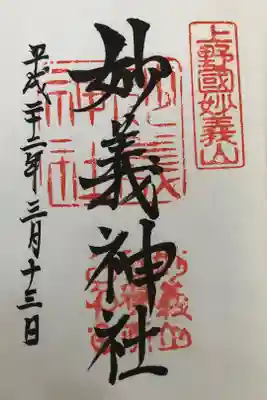 上野國妙義山
妙義神社
平成二十二年三月十三日